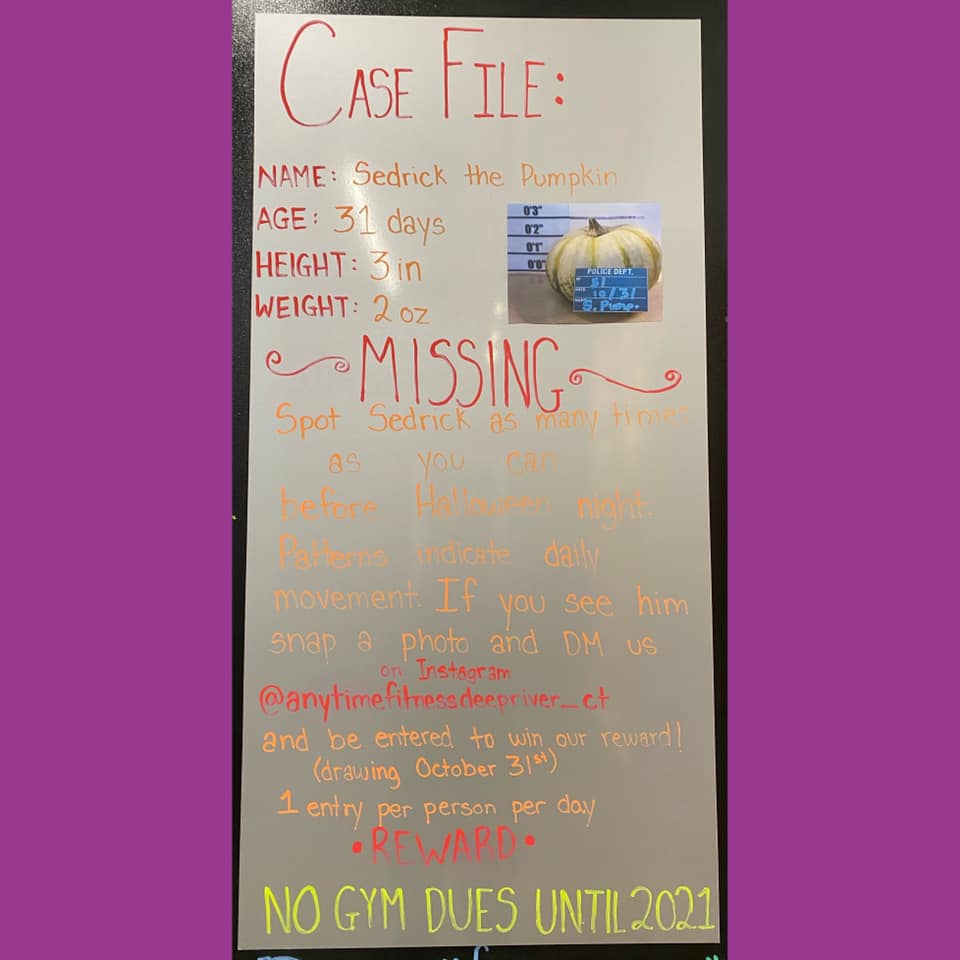 CASE FILE:
NAME: Sedrick the Pumpkin
AGE: 31 days
HEIGHT: 3 in
WEIGHT: 2 oz
0'3"
0'2"
0'1"
0'0"
POLICE DEPT.
10/31
S. Pump.
MISSING
Spot Sedrick as many times
as you can
before Halloween night.
Patterns indicate daily
movement. If you see him
snap a photo and DM us
on Instagram
@anytimefitnessdeepriver_ct
and be entered to win our reward!
(drawing October 31st)
1 entry per person per day
• REWARD •
NO GYM DUES UNTIL 2021